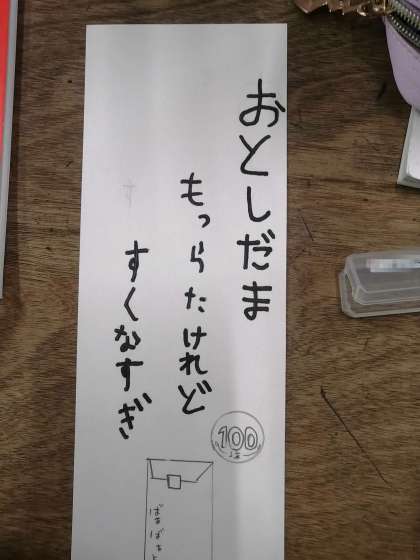 おとしだま
もっらたけれど
すくなすぎ
100